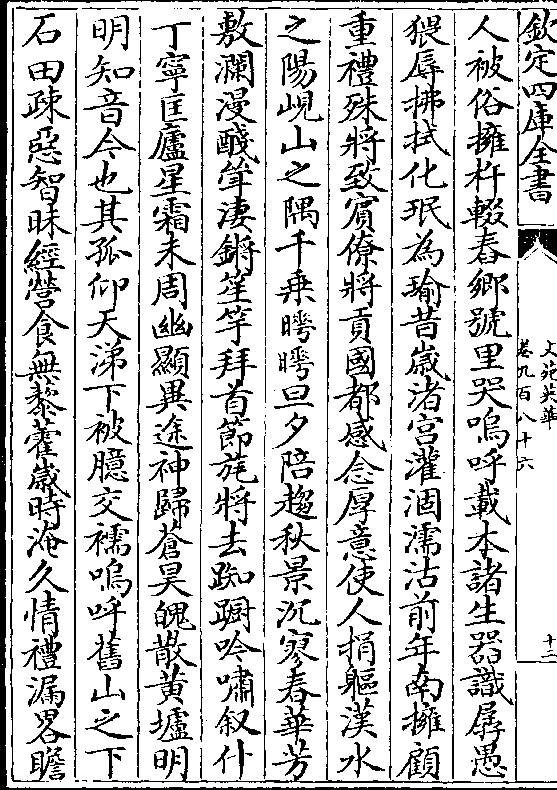 欽定四庫全書
文苑英華
卷九百八十六
十二
人被俗擁杵輟舂鄉號里哭嗚呼載本諸生器識孱愚
猥辱拂拭化珉為瑜昔歲渚宮灌涸濡沽前年南擁顧
重禮殊將致賓僚將貢國都感念厚意使人捐軀漢水
之陽峴山之隅千乗暳暳旦夕陪趨秋景沉寥春華芳
敷瀾漫醆斝淒鏘笙竽拜首節旄將去踟蹰吟嘯叙什
丁寧匡廬星霜未周幽顯異途神歸蒼昊魄散黃壚明
明知音今也其孤仰天涕下被臆交襦嗚呼舊山之下
石田疎惡智昧經營食無藜藿歲時淹久情禮漏畧瞻